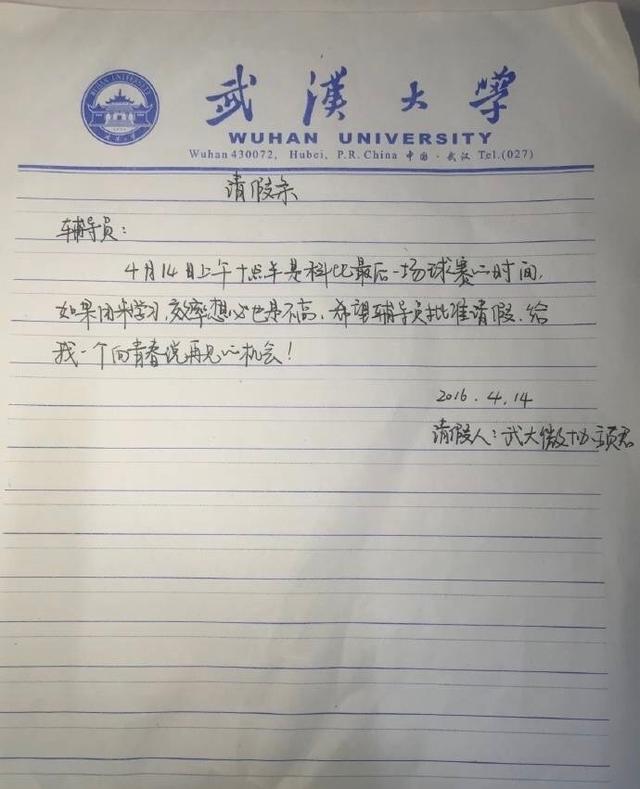 武漢大學
WUHAN UNIVERSITY
Wuhan 430072, Hubei, P.R. China 中国·武汉 Tel.(027)
请假条
辅导员:
4月14日上午十点半是科比最后一场球赛的时间,
如果闭来学习,效率想必也是不高,希望辅导员批准请假,给
我一个向青春说再见的机会!
2016.4.14
请假人:武大微协